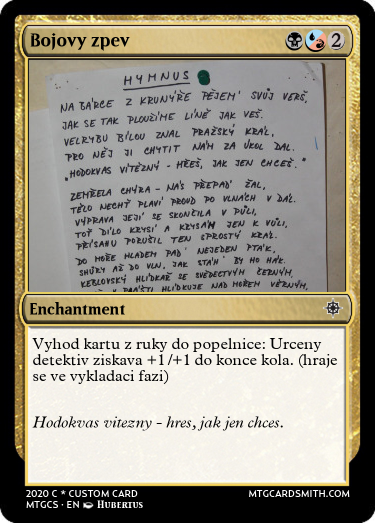 Bojovy zpev 2
HYMNUS
NA BÁRCE Z KRUNÝŘE PĚJEM' SVŮJ VERŠ,
JAK SE TAK PLOUŽÍME LÍNĚ JAK VEŠ.
VELRYBU BÍLOU ZNAL PRAŽSKÝ KRÁL,
PRO NĚJ JI CHYTIT NÁM ZA ÚKOL DAL.
"HODOKVAS VÍTĚZNÝ - HŘEŠ, JAK JEN CHCEŠ."
ZEMŘELA CHÝRA - NÁS PŘEPAD' ŽAL,
TĚLO NECHŤ PLAVÍ PROUD PO VLNÁCH V DÁL.
VÝPRAVA JEJÍ SE SKONČILA V PŮLI,
TOŤ DÍLO KRYSÍ A KRYSÁM JEN K VŮLI,
PŘÍSAHU PORUŠIL TEN SPROSTÝ KRÁL.
DO MOŘE HLADEM PAD' NEJEDEN PTÁK,
SHŮRY AŽ DO VLN, JAK STÁH' BY HO HÁK.
KEBLOVSKÝ HLÍDKAŘ SE SVĚDECTVÍM ČERNÝM,
HLÍDKUJE NAD MOŘEM VĚRNÝM,
Enchantment
Vyhod kartu z ruky do popelnice: Urceny
detektiv ziskava +1/+1 do konce kola. (hraje
se ve vykladaci fazi)
Hodokvas vitezny - hres, jak jen chces.
2020 C * CUSTOM CARD MTGCARDSMITH.COM
MTGCS · EN HUBERTUS